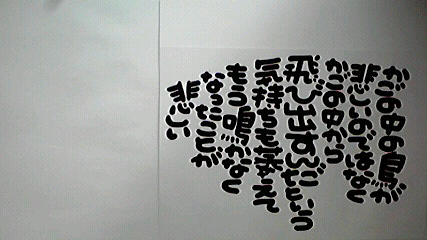 かごの中の鳥が
悲しいのではなく
かごの中から
飛び出すんだという
気持ちも萎えて
もう鳴かなく
なったことが
悲しい